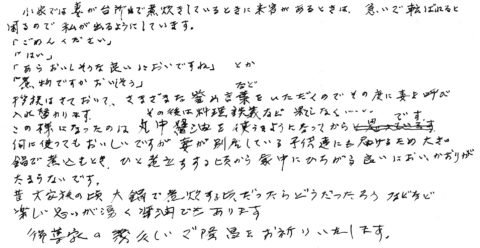 小家では妻が台所で煮炊きしているときに来客があるときは、急いで転ばれると
困るので私が出るようにしています。
「ごめんください」
「はい」
「あらおいしそうな良いにおいですね」とか
「煮物ですかおいそう」など
挨拶はさておいて、さまざまな誉め言葉をいただくのでその度に妻を呼び
入れ替わります。その後は料理談義など果てしなく……
この様になったのは丸中醤油を使うようになってからです。
何に使ってもおいしいですが妻が別居している子供達にも届けるため大きな
鍋で煮込むとき、ひと煮立ちする頃から家中にひろがる良いにおいかおりが
たまらないです。
昔大家族の頃大鍋で煮炊する頃だったらどうだったろうなどなど
楽しい思いが湧く醤油であります
御蔵家の幾久しいご隆昌をお祈りいたします。